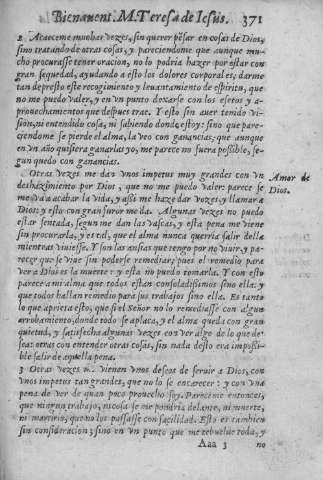 Bienauent. M. Teresa de Iesus. 371
2 Acaeceme muchas vezes, sin querer pẽsar en cosas de Dios,
sino tratando de otras cosas, y pareciendome que aunque mu-
cho procurasse tener oracion, no lo podria hazer por estar con
gran sequedad, ayudando a esto los dolores corporales; darme
tan depresto este recogimiento y leuantamiento de espiritu, que
no me puedo valer, y en vn punto dexarse con los efetos y a-
prouechamientos que despues trae. Y esto sin auer tenido vi-
sion, ni entendido cosa, ni sabiendo donde estoy: sino que pare-
ciendome se pierde el alma, la veo con ganancias, que aunque
en vn año quisiera ganarlas yo, me parece no fuera possible, se-
gun quedo con ganancias.
Otras vezes me dan vnos impetus muy grandes con vn
deshazimiento por Dios, que no me puedo valer: parece se
me va a acabar la vida, y assi me haze dar vozes, y llamar a
Dios: y esto con gran furor me da. Algunas vezes no puedo
estar sentada, segun me dan las vascas, y esta pena me viene
sin procurarla, y es tal, que el alma nunca querria salir della
mientras viuiesse. Y son las ansias que tengo por no viuir, y pa-
recer que se viue sin poderse remediar, pues el remedio para
ver a Dios es la muerte: y esta no puedo tomarla. Y con esto
parece a mi alma que todos estan consoladissimos sino ella: y
que todos hallan remedio para sus trabajos sino ella. Es tanto
lo que aprieta esto, que si el Señor no lo remediasse con algun
arrobamiento, donde todo se aplaca, y el alma queda con gran
quietud, y satisfecha algunas vezes con ver algo de lo que de-
sea: otras con entender otras cosas, sin nada desto era impossi-
ble salir de aquella pena.
Amor de
Dios.
3 Otras vezes me vienen vnos deseos de seruir a Dios, con
vnos impetus tan grandes, que no lo se encarecer: y con vna
pena de ver de quan poco prouecho soy. Pareceme entonces,
que ningun trabajo, ni cosa se me pondria delante, ni muerte,
ni martirio, que no los passasse con facilidad. Esto es tambien
sin consideracion; sino en vn punto que me rebuelue toda, y
Aaa 3 no